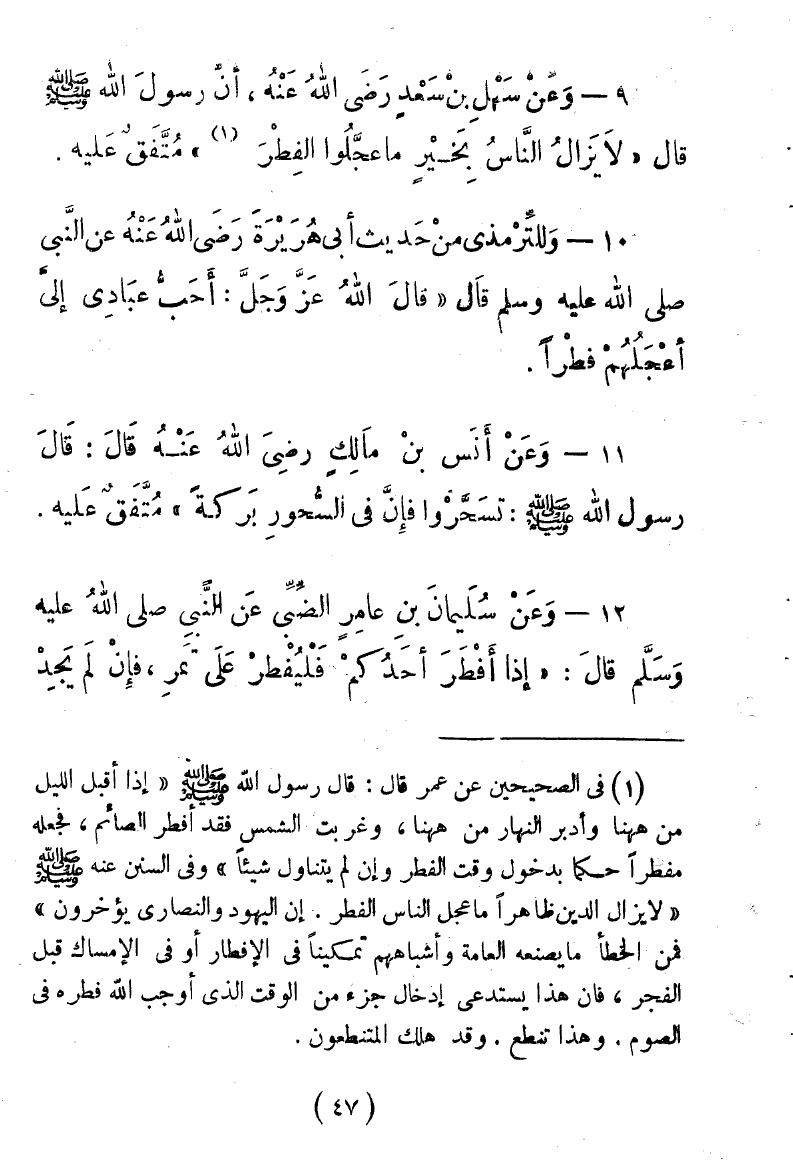 ٩ — وَعَنْ سَهْلِ بن سَعْدٍ رَضَى اللهُ عَنْهُ ، أنَّ رسولَ الله ﷺ
قال « لاَ يَزَالُ النَّاسُ بِخَيْرٍ ماعجَّلُوا الفِطْرَ (١) » مُتَّفَقٌ عَليه .
١٠ — وَللتِّرْمذى منْ حَديث أبى هُرَيْرَةَ رَضَى اللهُ عَنْهُ عن النَّبى
صلى الله عليه وسلم قَال « قالَ اللهُ عَزَّ وَجَلَّ : أَحَبُّ عبَادِى إلىَّ
أعْجَلُهُمْ فطْراً .
١١ — وَعَنْ أَنَس بنْ مَالِكٍ رضِىَ اللهُ عَنْهُ قَالَ : قَالَ
رسول الله ﷺ : تَسَحَّرُوا فإِنَّ فى السُّحورِ بَرَكةً » مُتَّفَقٌ عَليه .
١٢ — وَعَنْ سُلَيمانَ بنِ عامِرٍ الضَّبِّى عَن النَّبِى صلى اللهُ عليه
وَسَلَّم قالَ : « إذا أَفْطَرَ أحَدُكمْ فَلْيُفْطرْ عَلَى تَمرٍ ، فإنْ لَم يَجِدْ
(١) فى الصحيحين عن عمر قال : قال رسول الله ﷺ « إذا أقبل الليل
من ههنا وأدبر النهار من ههنا ، وغربت الشمس فقد أفطر الصائم ، فجعله
مفطراً حكما بدخول وقت الفطر وإن لم يتناول شيئاً » وفى السنن عنه ﷺ
« لايزال الدين ظاهراً ماعجل الناس الفطر . إن اليهود والنصارى يؤخرون »
فمن الخطأ مايصنعه العامة وأشباههم تمكيناً فى الإفطار أو فى الإمساك قبل
الفجر ، فان هذا يستدعى إدخال جزء من الوقت الذى أوجب الله فطره فى
الصوم . وهذا تنطع . وقد هلك المتنطعون .
( ٤٧ )